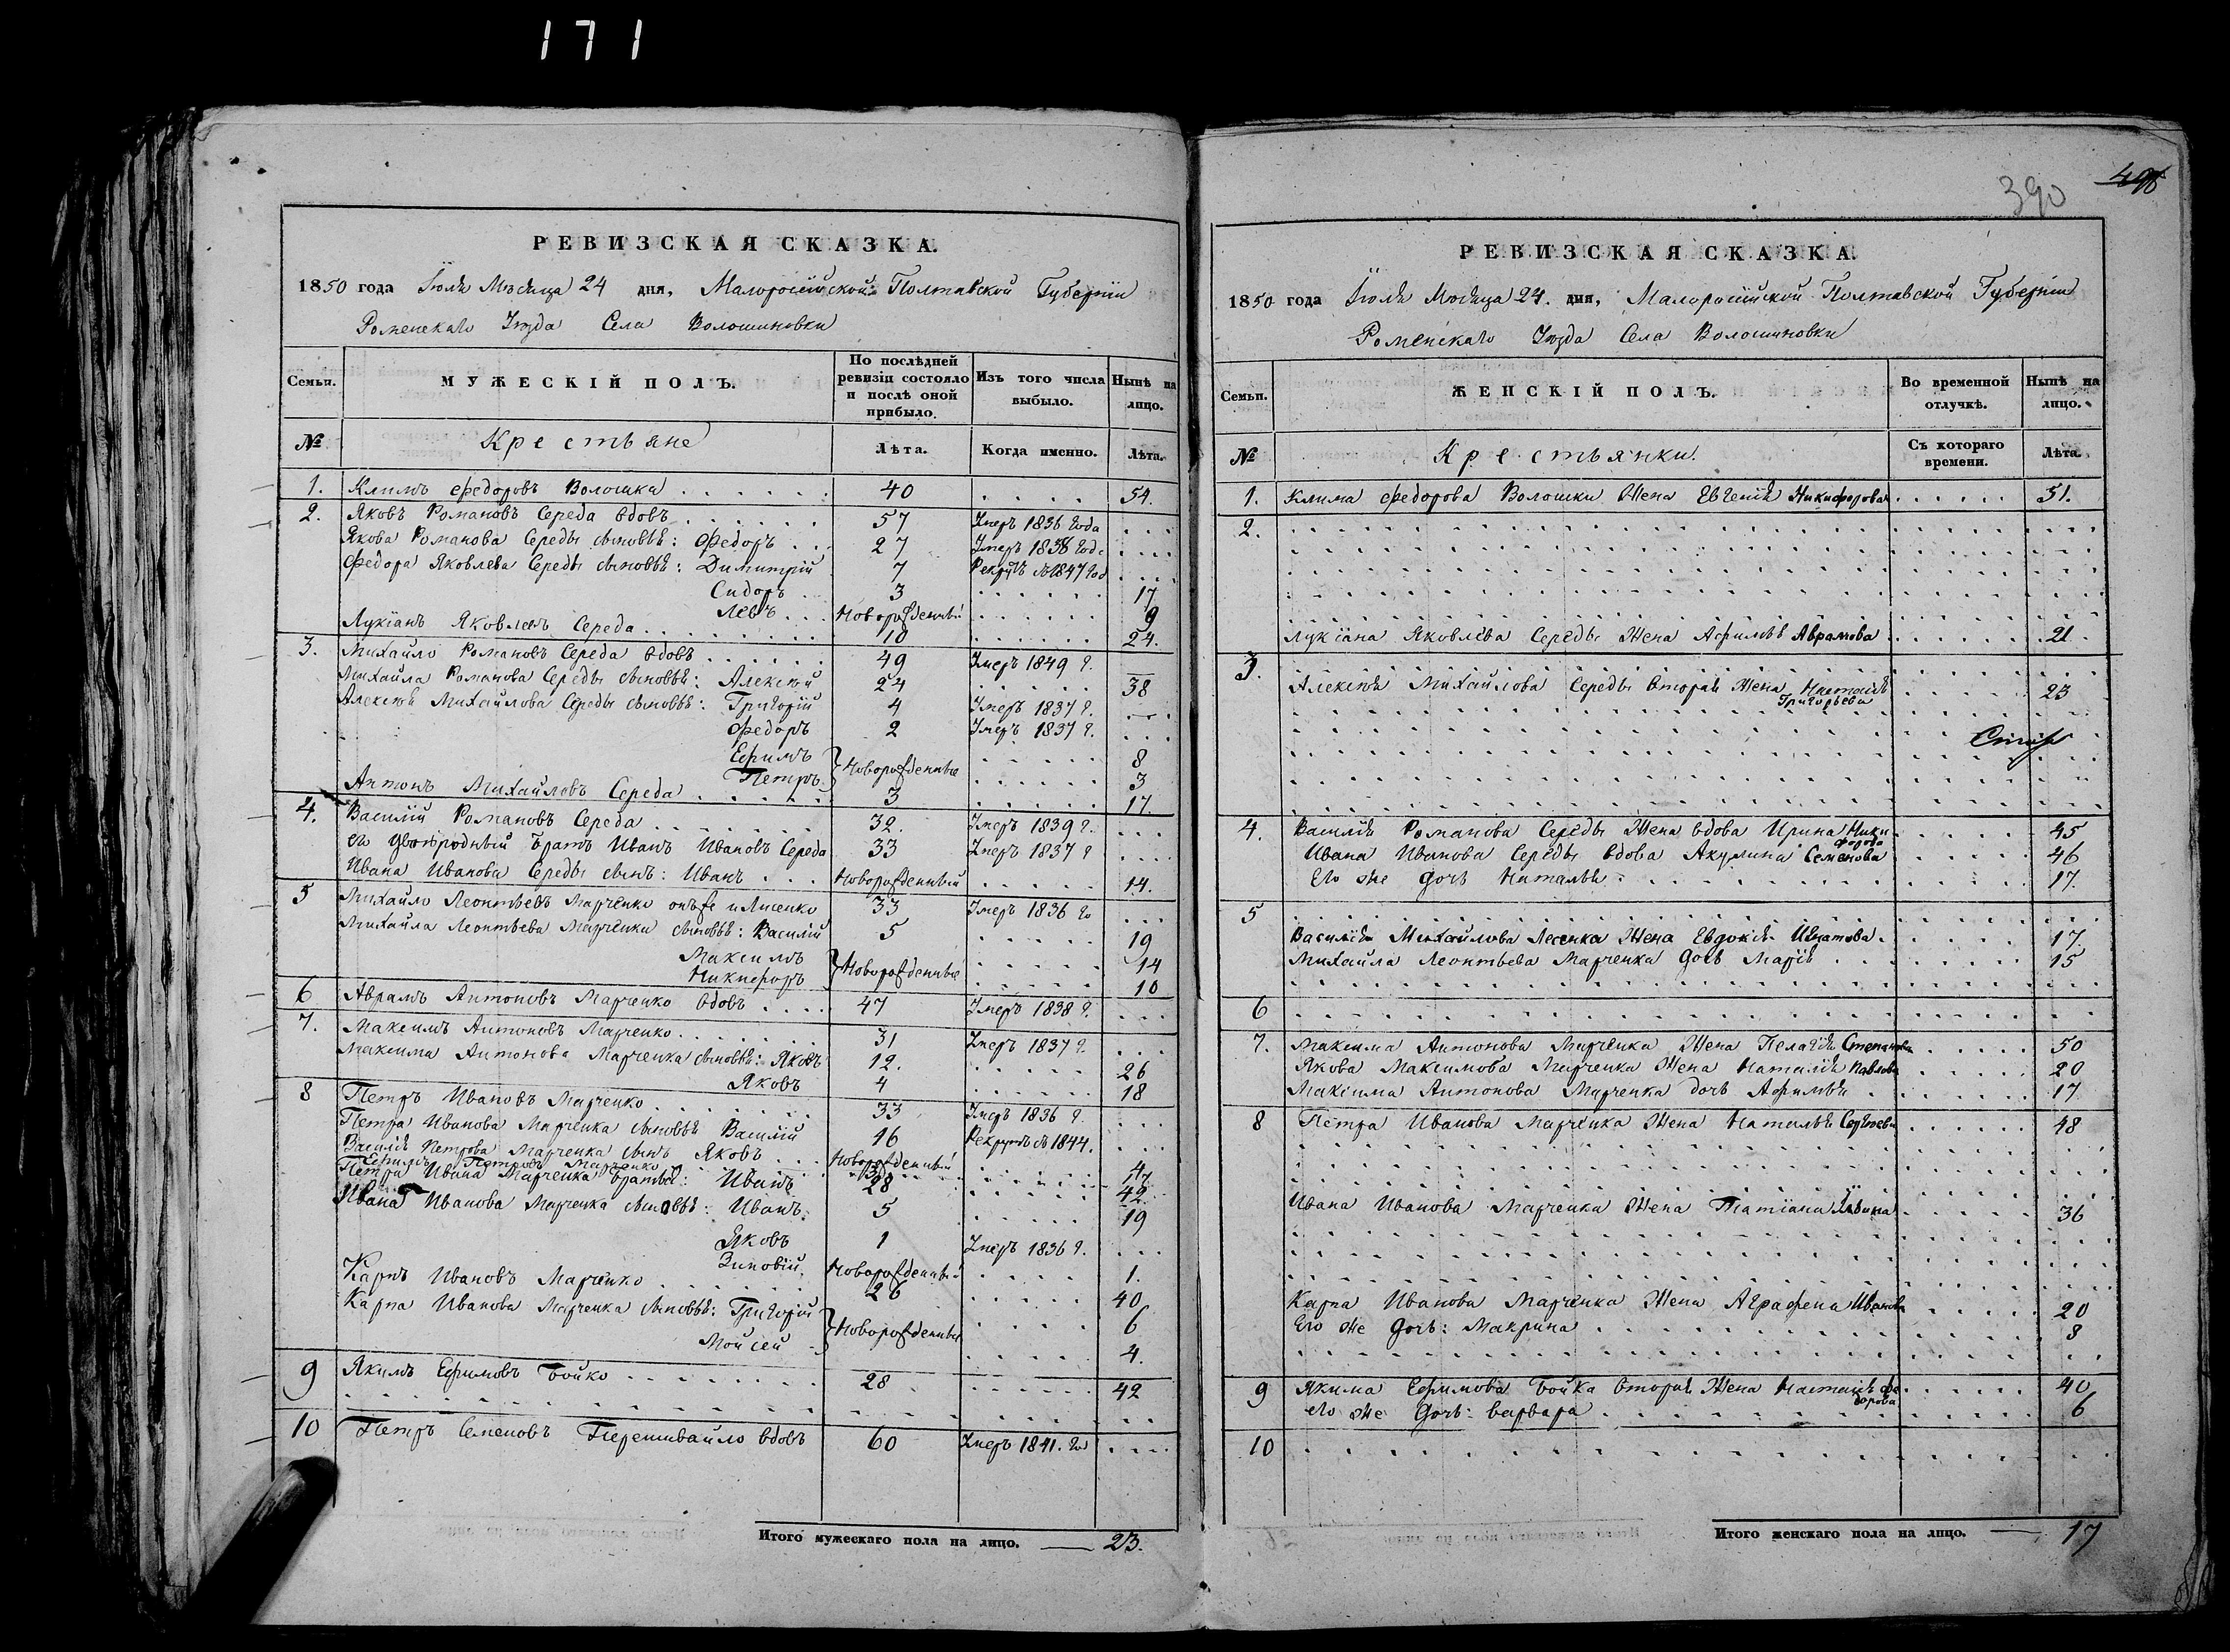 171
РЕВИЗСКАЯ СКАЗКА.
1850 года Іюля Мѣсяца 24 дня, Малоросійской Полтавской Губерніи
Роменскаго Уѣзда Села Волошиновки
Семьи.
МУЖЕСКІЙ ПОЛЪ.
По послѣдней ревизіи состояло и послѣ оной прибыло.
Изъ того числа выбыло.
Нынѣ на лицо.
№
Крестьяне
Лѣта.
Когда именно.
Лѣта.
1. Климъ Федоровъ Волошка 40 54.
2. Яковъ Романовъ Середа вдовъ 57 Умеръ 1836 года
Якова Романова Середы сыновья: Федоръ 27 Умеръ 1838 года
Федора Яковлева Середы сыновья: Димитрій 7 Рекрутъ съ 1847 год
Сидоръ 3 17
Левъ Новорожденный 9
Лукіанъ Яковлевъ Середа 10 24.
3. Михайло Романовъ Середа вдовъ 49 Умеръ 1849 г.
Михайла Романова Середы сыновья: Алексѣй 24 38
Алексѣя Михайлова Середы сыновья: Григорій 4 Умеръ 1837 г.
Федоръ 2 Умеръ 1837 г.
Ефимъ } Новорожденные 8
Петръ 3
Антонъ Михайловъ Середа 3 17.
4. Василій Романовъ Середа 32. Умеръ 1839 г.
его двоюродный братъ Иванъ Ивановъ Середа 33 Умеръ 1837 г
Ивана Иванова Середы сынъ: Иванъ Новорожденный 14.
5 Михайло Леонтьевъ Марченко онъже и Лисенко 33 Умеръ 1836 го
Михайла Леонтьева Марченки сыновья: Василій 5 19
Максимъ } Новорожденные 14
Никифоръ 10
6 Аврамъ Антоновъ Марченко вдовъ 47 Умеръ 1838 г.
7. Максимъ Антоновъ Марченко 31 Умеръ 1837 г.
Максима Антонова Марченка сыновья: Яковъ 12. 26
Яковъ 4 18
8 Петръ Ивановъ Марченко 33 Умеръ 1836 г.
Петра Иванова Марченка сыновья Василій 16 Рекрутъ съ 1844.
Василія Петрова Марченка сынъ Яковъ Новорожденный 4
Ефимъ Петровъ Марченко 3 17
Петра Ивана Марченка братья: Иванъ 28 42
Ивана Иванова Марченка сыновья: Иванъ 5 19
Яковъ 1 Умеръ 1836 г.
Зиновій Новорожденный 1.
Карпъ Ивановъ Марченко 26 40
Карпа Иванова Марченка сыновья: Григорій } Новорожденные 6
Мойсей 4.
9 Якимъ Ефимовъ Бойко 28 42
10 Петръ Семеновъ Перешивайло вдовъ 60 Умеръ 1841. го
Итого мужескаго пола на лицо. 23.
390
РЕВИЗСКАЯ СКАЗКА.
1850 года Іюля Мѣсяца 24. дня, Малоросійской Полтавской Губерніи
Роменскаго Уѣзда Села Волошиновки
Семьи.
ЖЕНСКІЙ ПОЛЪ.
Во временной отлучкѣ.
Нынѣ на лицо.
№
Крестьянки.
Съ котораго времени.
Лѣта.
1. Клима Федорова Волошки Жена Евгенія Никифорова 51.
2.
Лукіана Яковлева Середы Жена Афимья Аврамова 21.
3.
Алексѣя Михайлова Середы вторая Жена Настасія Григорьева 23
4. Василія Романова Середы Жена вдова Ирина Никифорова 45
Ивана Иванова Середы вдова Акулина Семенова 46
Его же дочь Наталья 17.
5
Василія Михайлова Лесенка Жена Евдокія Игнатова 17.
Михайла Леонтьева Марченка дочь Марія 15
6
7. Максима Антонова Марченка Жена Пелагія Степанова 50
Якова Максимова Марченка Жена Наталія Павлова 20
Максима Антонова Марченка дочь Афимья 17
8 Петра Иванова Марченка Жена Наталья Сергѣева 48
Ивана Иванова Марченка Жена Татіана 36
Карпа Иванова Марченка Жена Аграфена Иванова 20
Его же дочь: Макрина 8
9 Якима Ефимова Бойка вторая Жена Настасія Федорова 40
его же дочь: Варвара 6
10
Итого женскаго пола на лицо. 17